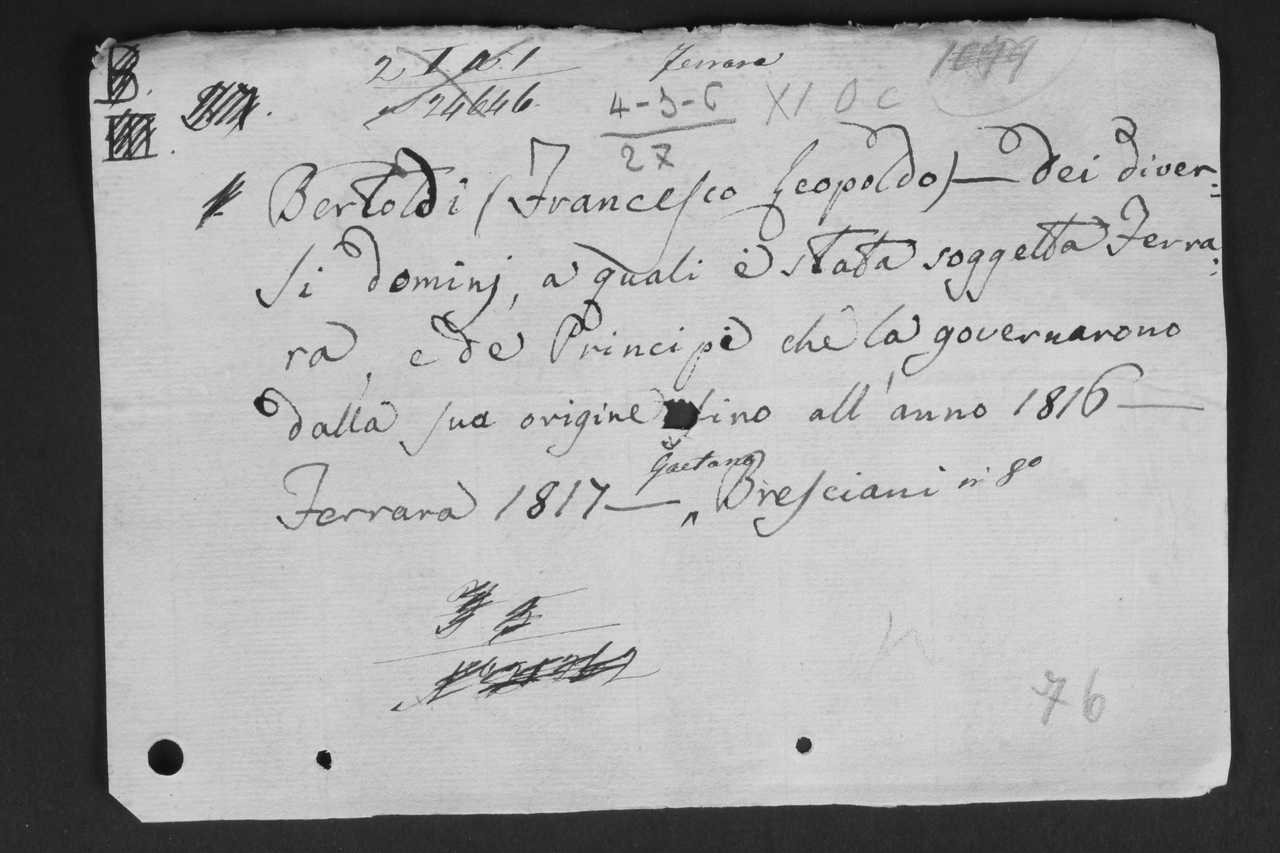 2 I a 1
24646.
Ferrara
4-3-6
27
XI O C
1699
Bertoldi (Francesco Leopoldo) — dei diver:
si dominj, a quali è stata soggetta Ferra:
ra, e de Principi che la governarono
dalla sua origine fino all'anno 1816 —
Ferrara 1817 — Gaetano Bresciani in 8º
76